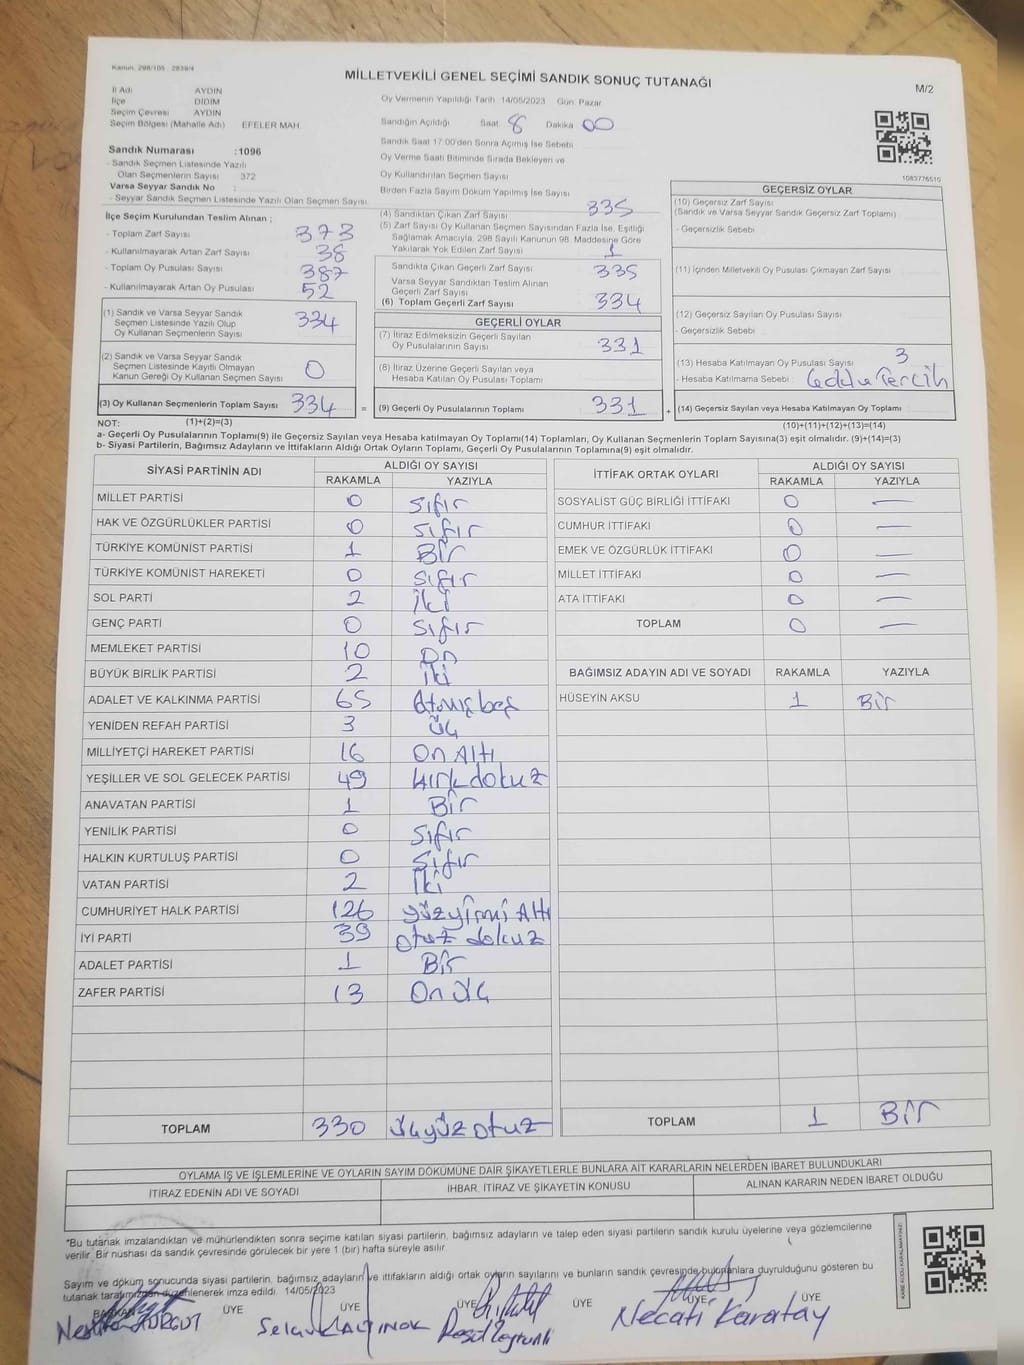 Kanun. 298/105 - 2839/4
MİLLETVEKİLİ GENEL SEÇİMİ SANDIK SONUÇ TUTANAĞI
M/2
İl Adı AYDIN
İlçe DİDİM
Seçim Çevresi AYDIN
Seçim Bölgesi (Mahalle Adı) EFELER MAH
Oy Vermenin Yapıldığı Tarih 14/05/2023 Gün: Pazar
Sandığın Açıldığı Saat 8 Dakika 00
Sandık Saat 17:00'den Sonra Açımış İse Sebebi
Oy Verme Saati Bitiminde Sırada Bekleyen ve
Oy Kullandırılan Seçmen Sayısı
Birden Fazla Sayım Döküm Yapılmış İse Sayısı
Sandık Numarası :1096
- Sandık Seçmen Listesinde Yazılı
Olan Seçmenlerin Sayısı 372
Varsa Seyyar Sandık No :
- Seyyar Sandık Seçmen Listesinde Yazılı Olan Seçmen Sayısı
1083776510
İlçe Seçim Kurulundan Teslim Alınan ;
- Toplam Zarf Sayısı 373
- Kullanılmayarak Artan Zarf Sayısı 38
- Toplam Oy Pusulası Sayısı 387
- Kullanılmayarak Artan Oy Pusulası 52
(1) Sandık ve Varsa Seyyar Sandık
Seçmen Listesinde Yazılı Olup
Oy Kullanan Seçmenlerin Sayısı 334
(2) Sandık ve Varsa Seyyar Sandık
Seçmen Listesinde Kayıtlı Olmayan
Kanun Gereği Oy Kullanan Seçmen Sayısı 0
(3) Oy Kullanan Seçmenlerin Toplam Sayısı 334 =
(4) Sandıktan Çıkan Zarf Sayısı 335
(5) Zarf Sayısı Oy Kullanan Seçmen Sayısından Fazla İse, Eşitliği
Sağlamak Amacıyla, 298 Sayılı Kanunun 98. Maddesine Göre
Yakılarak Yok Edilen Zarf Sayısı 1
Sandıkta Çıkan Geçerli Zarf Sayısı 335
Varsa Seyyar Sandıktan Teslim Alınan
Geçerli Zarf Sayısı
(6) Toplam Geçerli Zarf Sayısı 334
GEÇERLİ OYLAR
(7) İtiraz Edilmeksizin Geçerli Sayılan
Oy Pusulalarının Sayısı 331
(8) İtiraz Üzerine Geçerli Sayılan veya
Hesaba Katılan Oy Pusulası Toplamı
(9) Geçerli Oy Pusulalarının Toplamı 331 +
GEÇERSİZ OYLAR
(10) Geçersiz Zarf Sayısı
(Sandık ve Varsa Seyyar Sandık Geçersiz Zarf Toplamı)
- Geçersizlik Sebebi
(11) İçinden Milletvekili Oy Pusulası Çıkmayan Zarf Sayısı
(12) Geçersiz Sayılan Oy Pusulası Sayısı
- Geçersizlik Sebebi
(13) Hesaba Katılmayan Oy Pusulası Sayısı 3
- Hesaba Katılmama Sebebi : Tercih
(14) Geçersiz Sayılan veya Hesaba Katılmayan Oy Toplamı
NOT: (1)+(2)=(3) (10)+(11)+(12)+(13)=(14)
a- Geçerli Oy Pusulalarının Toplamı(9) ile Geçersiz Sayılan veya Hesaba katılmayan Oy Toplamı(14) Toplamları, Oy Kullanan Seçmenlerin Toplam Sayısına(3) eşit olmalıdır. (9)+(14)=(3)
b- Siyasi Partilerin, Bağımsız Adayların ve İttifakların Aldığı Ortak Oyların Toplamı, Geçerli Oy Pusulalarının Toplamına(9) eşit olmalıdır.
SİYASİ PARTİNİN ADI ALDIĞI OY SAYISI
RAKAMLA YAZIYLA
MİLLET PARTİSİ 0 Sıfır
HAK VE ÖZGÜRLÜKLER PARTİSİ 0 Sıfır
TÜRKİYE KOMÜNİST PARTİSİ 1 Bir
TÜRKİYE KOMÜNİST HAREKETİ 0 Sıfır
SOL PARTİ 2 İki
GENÇ PARTİ 0 Sıfır
MEMLEKET PARTİSİ 10 On
BÜYÜK BİRLİK PARTİSİ 2 iki
ADALET VE KALKINMA PARTİSİ 65 Atmış beş
YENİDEN REFAH PARTİSİ 3 Üç
MİLLİYETÇİ HAREKET PARTİSİ 16 On Altı
YEŞİLLER VE SOL GELECEK PARTİSİ 49 kırk dokuz
ANAVATAN PARTİSİ 1 Bir
YENİLİK PARTİSİ 0 Sıfır
HALKIN KURTULUŞ PARTİSİ 0 Sıfır
VATAN PARTİSİ 2 İki
CUMHURİYET HALK PARTİSİ 126 yüzyirmi Altı
İYİ PARTİ 39 otuz dokuz
ADALET PARTİSİ 1 Bir
ZAFER PARTİSİ 13 On üç
TOPLAM 330 üçyüz otuz
İTTİFAK ORTAK OYLARI ALDIĞI OY SAYISI
RAKAMLA YAZIYLA
SOSYALİST GÜÇ BİRLİĞİ İTTİFAKI 0 —
CUMHUR İTTİFAKI 0 —
EMEK VE ÖZGÜRLÜK İTTİFAKI 0 —
MİLLET İTTİFAKI 0 —
ATA İTTİFAKI 0 —
TOPLAM 0 —
BAĞIMSIZ ADAYIN ADI VE SOYADI RAKAMLA YAZIYLA
HÜSEYİN AKSU 1 Bir
TOPLAM 1 Bir
OYLAMA İŞ VE İŞLEMLERİNE VE OYLARIN SAYIM DÖKÜMÜNE DAİR ŞİKAYETLERLE BUNLARA AİT KARARLARIN NELERDEN İBARET BULUNDUKLARI
İTİRAZ EDENİN ADI VE SOYADI İHBAR, İTİRAZ VE ŞİKAYETİN KONUSU ALINAN KARARIN NEDEN İBARET OLDUĞU
"Bu tutanak imzalandıktan ve mühürlendikten sonra seçime katılan siyasi partilerin, bağımsız adayların ve talep eden siyasi partilerin sandık kurulu üyelerine veya gözlemcilerine
verilir. Bir nüshası da sandık çevresinde görülecek bir yere 1 (bir) hafta süreyle asılır.
Sayım ve döküm sonucunda siyasi partilerin, bağımsız adayların ve ittifakların aldığı ortak oyların sayılarını ve bunların sandık çevresinde bulunanlara duyurulduğunu gösteren bu
tutanak tarafımızdan düzenlenerek imza edildi. 14/05/2023
KARE KODU KARALAMAYINIZ!
BAŞKAN ÜYE ÜYE ÜYE ÜYE ÜYE
Necati Karatay